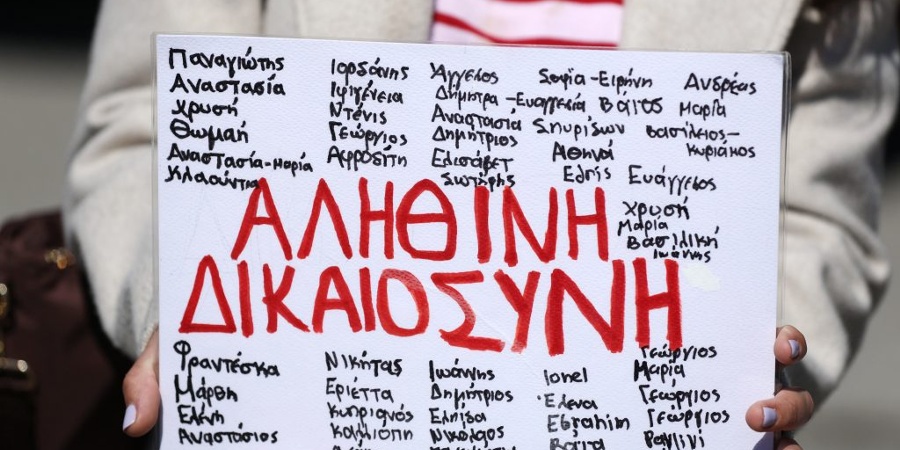 Παναγιώτης
Αναστασία
Χρυσή
Θωμαή
Αναστασία-Μαρία
Κλαούντια
Ιορδάνης
Ιφιγένεια
Ντένις
Γεώργιος
Αφροδίτη
Άγγελος
Δήμητρα-Ευαγγελία
Αναστασία
Δημήτριος
Ελισάβετ
Σωτήρης
Σοφία-Ειρήνη
Βάιος
Σπυρίδων
Αθηνά
Ελπίς
Ανδρέας
Μαρία
Βασίλειος-
Κυριάκος
Ευάγγελος
Χρυσή
Μαρία
Βασιλική
Ιωάννης
ΑΛΗΘΙΝΗ
ΔΙΚΑΙΟΣΥΝΗ
Φραντέσκα
Μάρθη
Ελένη
Αναστάσιος
Νικήτας
Εριέττα
Κυπριανός
Καλλιόπη
Ιωάννης
Δημήτριος
Ελπίδα
Νικόλαος
Ionel
Έλενα
Ebrahim
Βάια
Γεώργιος
Μαρία
Γεώργιος
Γεώργιος